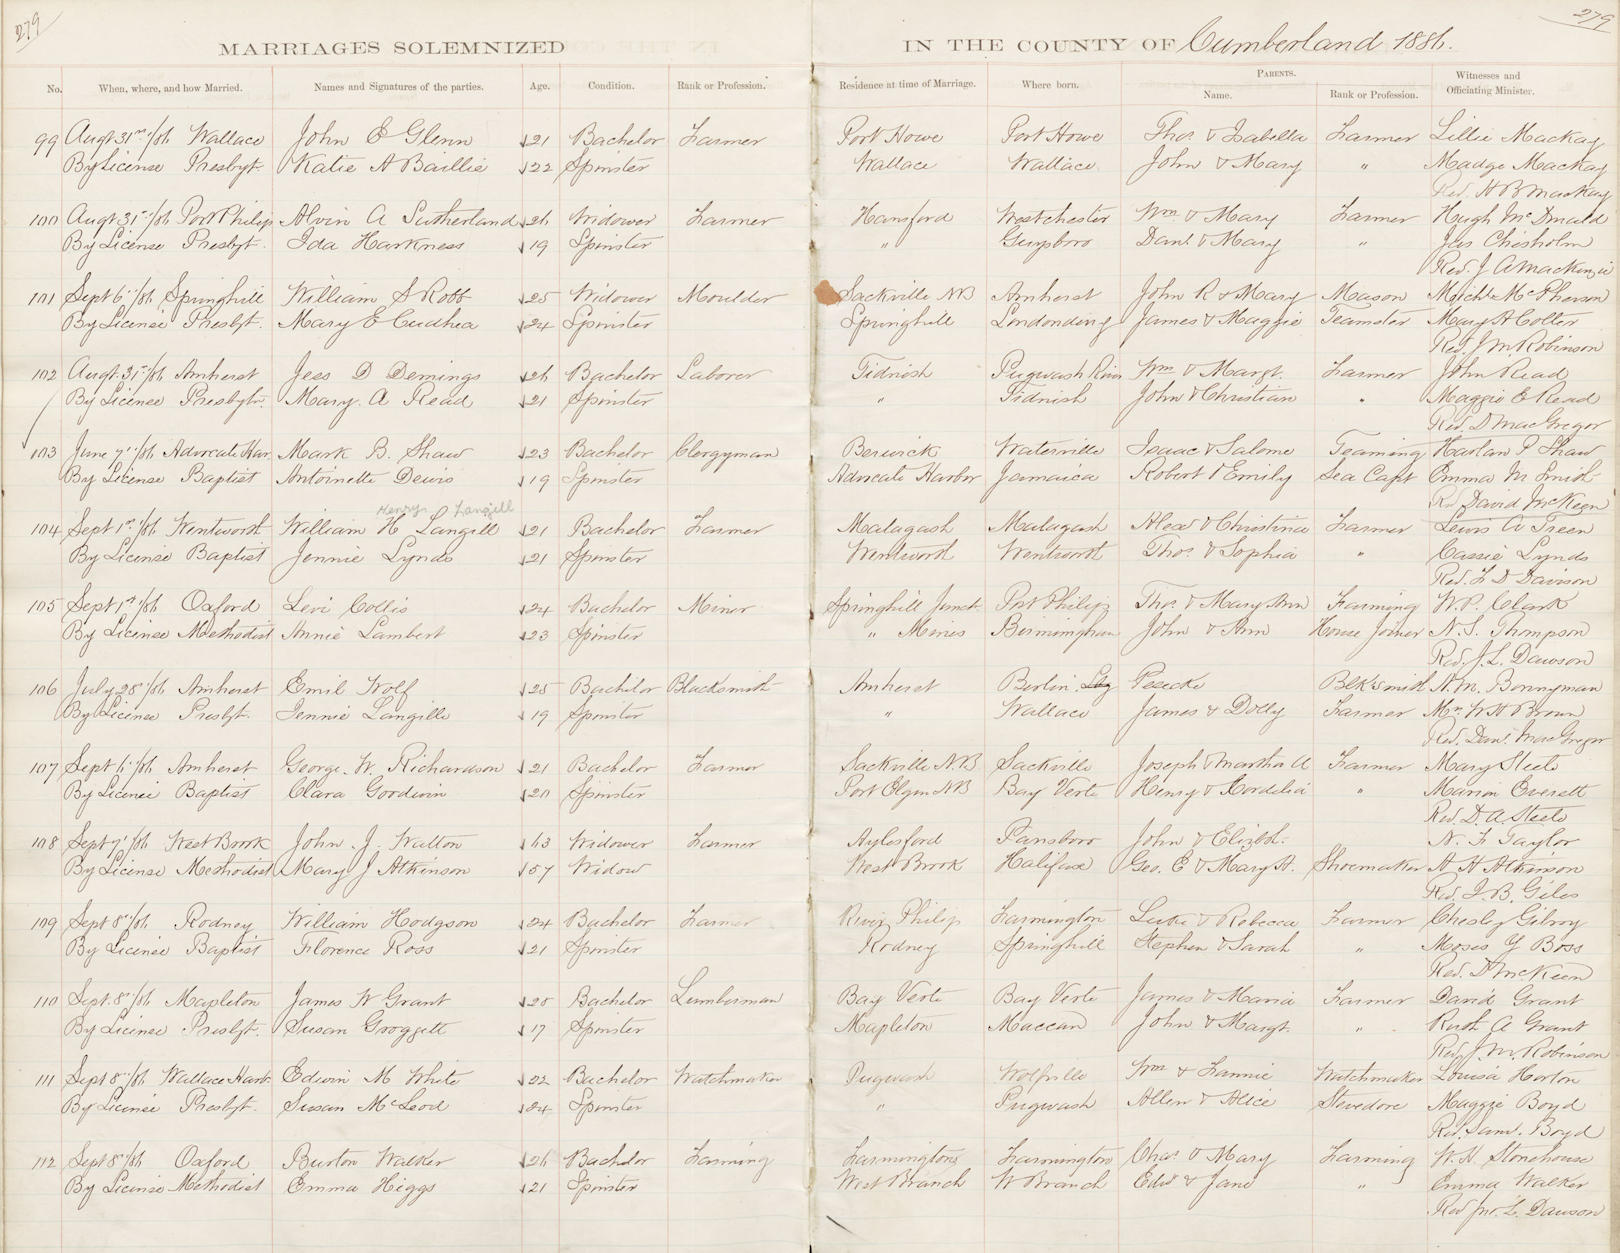 279
279
MARRIAGES SOLEMNIZED IN THE COUNTY OF Cumberland 1886.
No. When, where, and how Married. Names and Signatures of the parties. Age. Condition. Rank or Profession. Residence at time of Marriage. Where born. PARENTS. Name. Rank or Profession. Witnesses and Officiating Minister.
99 Augt 31st /86 Wallace John E Glenn 21 Bachelor Farmer Port Howe Port Howe Thos & Isabella Farmer Lillie Mackay
By License Presbyt. Katie A Baillie 22 Spinster Wallace Wallace John & Mary " Madge Mackay
Rev. H B Mackay
100 Augt 31st /86 Port Philip Alvin A Sutherland 26 Widower Farmer Hansford Westchester Wm & Mary Farmer Hugh McDonald
By License Presbyt. Ida Harkness 19 Spinster " Guysboro Danl & Mary " Jas Chisholm
Rev. J A MacKenzie
101 Sept 6th /86 Springhill William S Robb 25 Widower Moulder Sackville NB Amherst John R & Mary Mason Michl McPherson
By License Presbyt. Mary E Cudhea 24 Spinster Springhill Londonderry James & Maggie Teamster Mary A Colter
Rev. J M Robinson
102 Augt 31st /86 Amherst Jess D Demings 26 Bachelor Laborer Tidnish Pugwash River Wm & Margt. Farmer John Read
By License Presbytr. Mary. A Read 21 Spinster " Tidnish John & Christian " Maggie E Read
Rev. D MacGregor
103 June 7th /86 Advocate Har. Mark B. Shaw 23 Bachelor Clergyman Berwick Waterville Isaac & Salome Teaming Harlan P Shaw
By License Baptist Antoinette Dewis 19 Spinster Advocate Harbor Jamaica Robert & Emily Sea Capt Emma M Smith
Rev David McKeen
Henry Langill
104 Sept 1st /86 Wentworth William H Langill 21 Bachelor Farmer Malagash Malagash Alex & Christina Farmer Lewis A Treen
By License Baptist Jennie Lynds 21 Spinster Wentworth Wentworth Thos & Sophia " Cassie Lynds
Rev. F D Davison
105 Sept 1st /86 Oxford Levi Collis 24 Bachelor Miner Springhill Junct. Port Philip Thos. & Mary Ann Farming W. P. Clark
By License Methodist Annie Lambert 23 Spinster " Mines Birmingham John & Ann House Joiner N. S. Thompson
Rev. J. L. Dawson
106 July 28th /86 Amherst Emil Wolf 25 Bachelor Blacksmith Amherst Berlin Pesicke Blksmith A. M. Bonnyman
By License Presbyt. Jennie Langille 19 Spinster " Wallace James & Dolly Farmer Mrs. W H Brown
Rev. Danl. MacGregor
107 Sept 6th /86 Amherst George. W. Richardson 21 Bachelor Farmer Sackville NB Sackville Joseph & Martha A Farmer Mary Steele
By License Baptist Clara Goodwin 20 Spinster Port Elgin NB Bay Verte Henry & Cordelia " Marion Everett
Rev. D. A Steele
108 Sept 7th /86 West Brook John. J. Walton 63 Widower Farmer Aylesford Parrsboro John & Elizbt. N. F Taylor
By License Methodist Mary J Atkinson 57 Widow West Brook Halifax Geo. E & Mary A. Shoemaker A H Atkinson
Rev. J. B. Giles
109 Sept 8th /86 Rodney William Hodgson 24 Bachelor Farmer River Philip Farmington Luke & Rebecca Farmer Chesley Gilroy
By License Baptist Florence Ross 21 Spinster Rodney Springhill Stephen & Sarah " Moses Y Boss
Rev. D McKeen
110 Sept. 8th /86 Mapleton James W Grant 20 Bachelor Lumberman Bay Verte Bay Verte James & Maria Farmer David Grant
By License Presbyt. Susan Groggett 17 Spinster Mapleton Maccan John & Margt. " Ruth A Grant
Rev. J. M. Robinson
111 Sept 8th /86 Wallace Harb. Edwin M White 22 Bachelor Watchmaker Pugwash Wolfville Wm & Fannie Watchmaker Louisa Horton
By License Presbyt. Susan McLeod 24 Spinster " Pugwash Allen & Alice Stevedore Maggie Boyd
Rev. Saml. Boyd
112 Sept 8th /86 Oxford Burton Walker 26 Bachelor Farming Farmington Farmington Chas & Mary Farming W. H. Stonehouse
By License Methodist Emma Higgs 21 Spinster West Branch W Branch Edw & Jane " Emma Walker
Rev Jno. L. Dawson